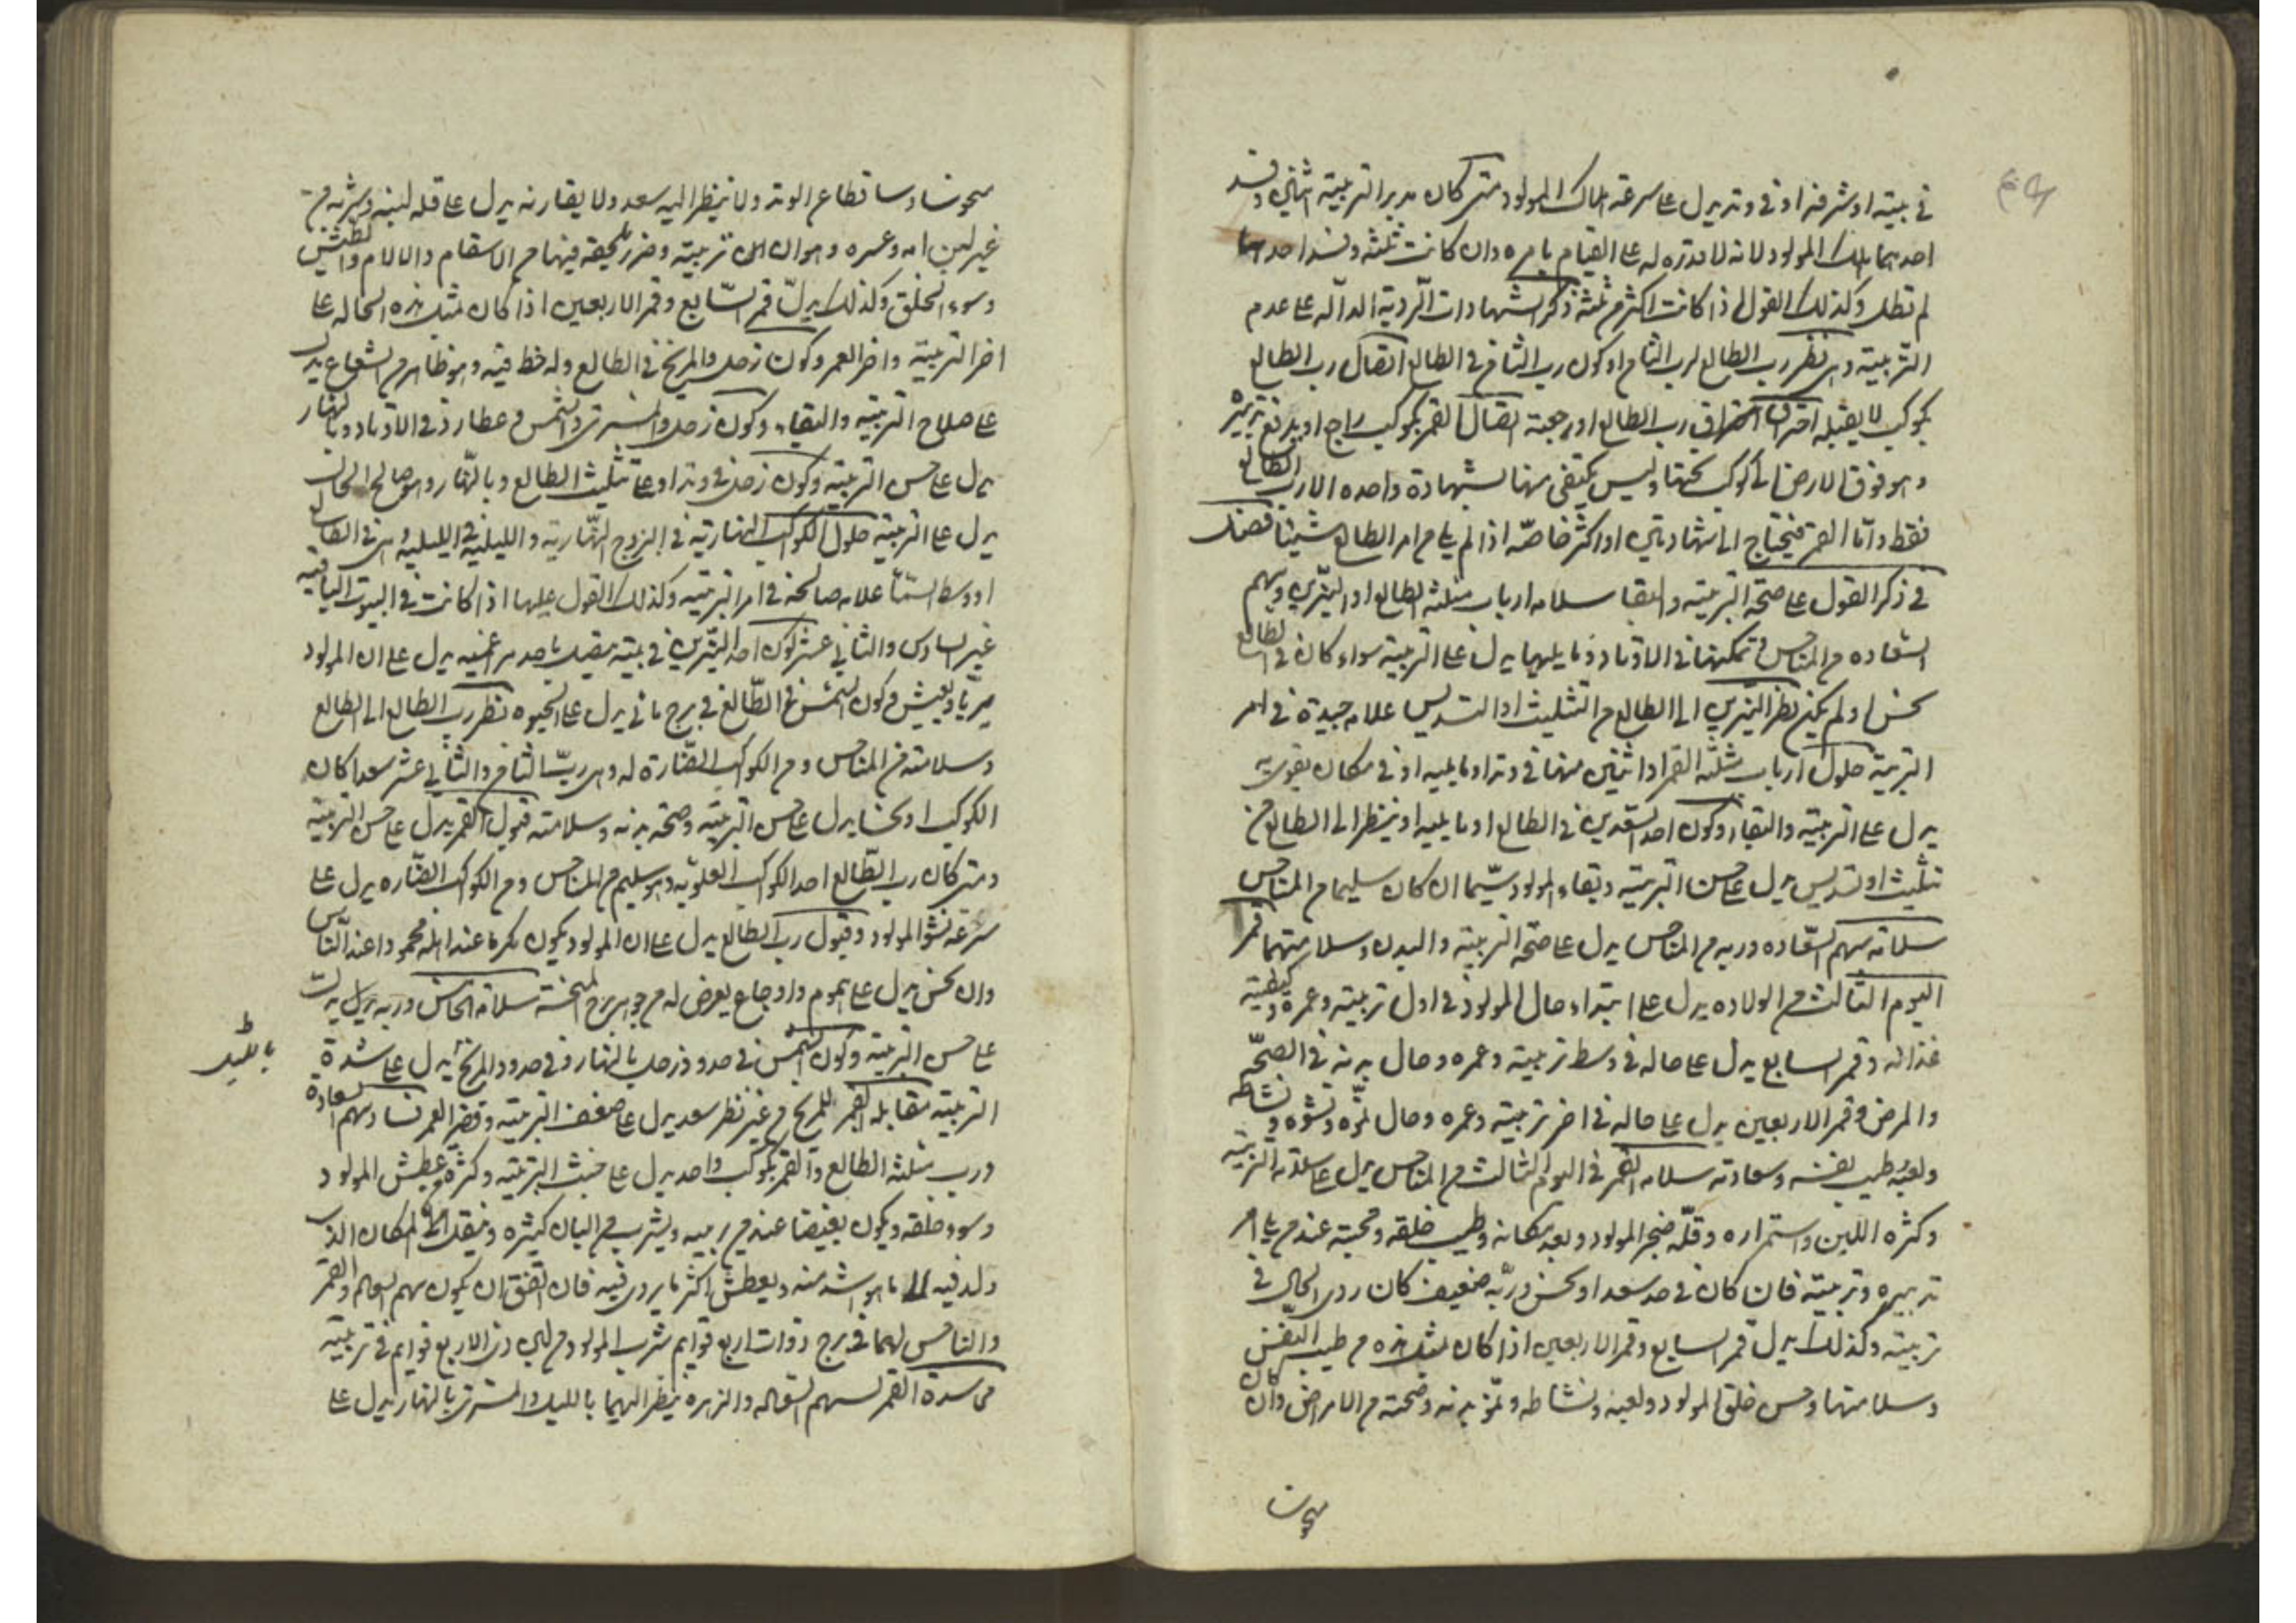 في بيته او شرفه او في وتد يدل على سرعة هلاك المولود متى كان مدبر التربية اثنين وفسد
احدهما هلك المولود لانه لا قدرة له على القيام بامره وان كانت ثلثة وفسد احدها
لم تطل وكذلك القول اذا كانت اكثر من ثلثة ذكر الشهادات الردية الدالة على عدم
التربية وهي نظر رب الطالع لرب الثامن او كون رب الثامن في الطالع اتصال رب الطالع
بكوكب لا يقبله احتراق رب الطالع او رجعته اتصال القمر بكوكب راجع او يدفع تدبيره
وهو فوق الارض الى كوكب تحتها وليس يكتفى منها بشهادة واحدة الا رب الطالع
فقط واما القمر فيحتاج الى شهادتين او اكثر خاصة اذا لم يل من امر الطالع شيئا فصل
في ذكر القول على صحة التربية والبقا سلامة ارباب مثلثة الطالع او النيرين وسهم
السعادة من المناحس وتمكنها في الاوتاد وما يليها يدل على التربية سواء كان في الطالع
نحس او لم يكن نظر النيرين الى الطالع من التثليث او التسديس علامة جيدة في امر
التربية حلول ارباب مثلثة القمر او اثنين منها في وتد او ما يليه او في مكان يقوى به
يدل على التربية والبقاء وكون احد السعدين في الطالع او ما يليه او ينظر الى الطالع من
تثليث او تسديس يدل على حسن التربية وبقاء المولود سيما ان كان سليما من المناحس
سلامة سهم السعادة وربه من المناحس يدل على صحة التربية والبدن وسلامتهما قمر
اليوم الثالث من الولادة يدل على ابتداء حال المولود في اول تربيته وعمره وكيفية
غذائه وقمر السابع يدل على حاله في وسط تربيته وعمره وحال بدنه في الصحة
والمرض وقمر الاربعين يدل على حاله في اخر تربيته وعمره وحال نموه ونشوه ونشاطه
ولعبه وطيب نفسه وسعادته سلامة القمر في اليوم الثالث من المناحس يدل على سلامة التربية
وكثرة اللبن واستمراره وقلة ضجر المولود وبعد مكانه وطيب خلقه ومحبته عند من يلي امر
تدبيره وتربيته فان كان في حد سعد او نحس وربه ضعيف كان ردى الحال في
تربيته وكذلك يدل قمر السابع وقمر الاربعين اذا كان بمثل هذه من طيب النفس
وسلامتها وحسن خلق المولود ولعبه ونشاطه ونمو بدنه وصحته من الامراض وان كان
منحوسا
منحوسا وساقطا عن الوتد ولا ينظر اليه سعد ولا يقارنه يدل على قلة لبنه وشربه من
غير لبن امه وعسره وهوان في تربيته وضرر يلحقه فيها من الاسقام والالام والطيش
وسوء الخلق وكذلك يدل قمر السابع وقمر الاربعين اذا كان بمثل هذه الحالة على
اخر التربية واخر العمر وكون زحل والمريخ في الطالع وله حظ فيه وهو ظاهر من الشعاع يدل
على صلاح التربية والبقاء وكون زحل والمشتري والشمس وعطارد في الاوتاد وبالنهار
يدل على حسن التربية وكون زحل في وتد او على تثليث الطالع وبالنهار وهو صالح الحال
يدل على التربية حلول الكواكب النهارية في البروج النهارية والليلية في الليلية وهي في الطالع
او وسط السما علامة صالحة في امر التربية وكذلك القول عليها اذا كانت في البيوت الباقية
غير السادس والثاني عشر كون احد النيرين في بيته متصل باحد يدل على ان المولود
يربا ويعيش وكون الشمس في الطالع في برج مائي يدل على الحيوة نظر رب الطالع الى الطالع
وسلامته من المناحس ومن الكواكب الضارة له وهي رب الثامن والثاني عشر سعدا كان
الكوكب او نحسا يدل على حسن التربية وصحة بدنه وسلامته قبول القمر يدل على حسن التربية
ومتى كان رب الطالع احد الكواكب العلوية وهو سليم من المناحس ومن الكواكب الضارة يدل على
سرعة نشو المولود وقبول رب الطالع يدل على ان المولود يكون مكرما عند اهله محمودا عند الناس
وان نحس يدل على هموم واوجاع يعرض له من جوهر برج المنحسة سلامة الخامس وربه يدل
على حسن التربية وكون الشمس في حدود زحل بالنهار وفي حدود المريخ يدل على شدة
بالليل
التربية مقابلة القمر للمريخ من غير نظر سعد يدل على ضعف التربية وقصر العمر فساد سهم السعادة
ورب مثلثة الطالع والقمر بكوكب واحد يدل على خبث التربية وكثرة عطش المولود
وسوء خلقه ويكون بغيضا عند من ربيه ويشرب من البان كثيرة وينقل من المكان الذى
ولد فيه الى ما هو اشد منه ويعطش اكثر ما يروى فيه فان اتفق ان يكون سهم السعادة والقمر
والناحس لهما في برج ذوات اربع قوايم شرب المولود من لبن ذى الاربع قوايم في تربيته
مماسدة القمر لسهم السعادة والزهرة ينظر اليهما بالليل والمشتري بالنهار يدل على